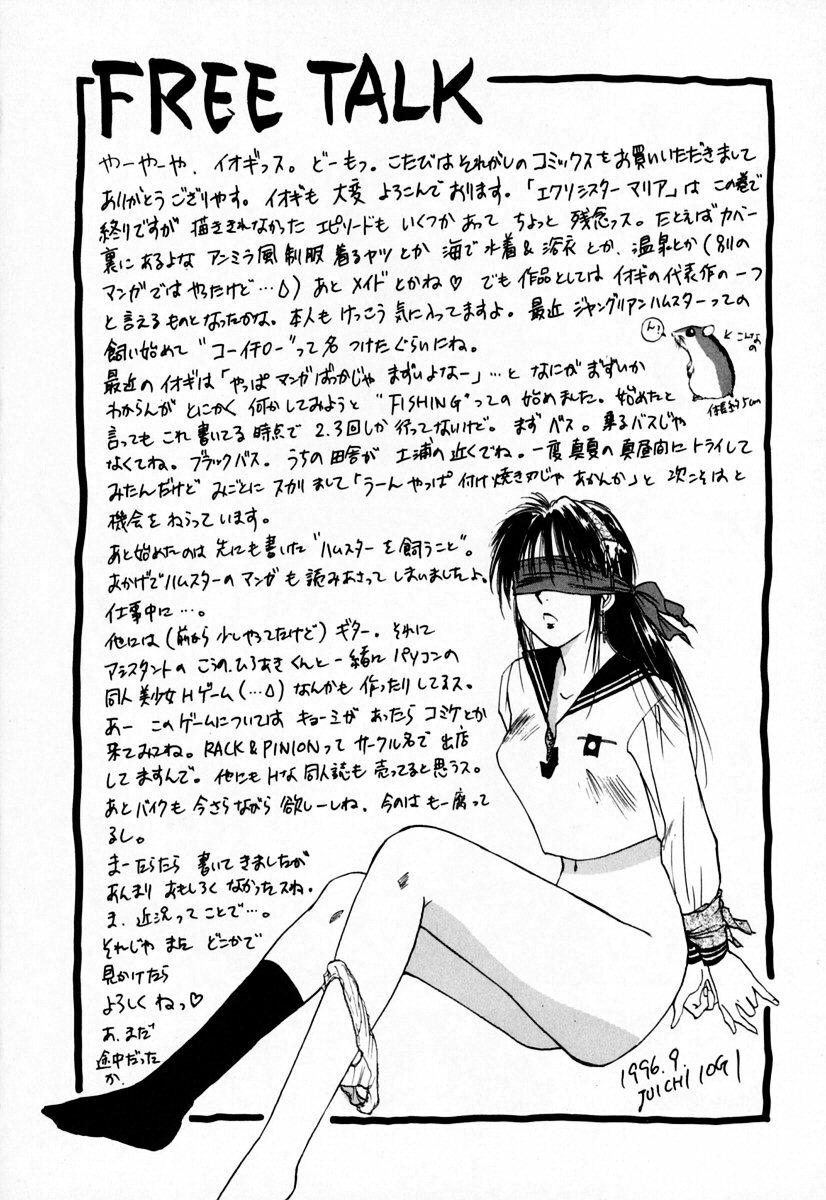 FREE TALK
やーやーや、イオギっス。どーもっ。こたびはそれがしのコミックスをお買いいただきまして
ありがとうござりやす。イオギも大変よろこんでおります。「エクソシスターマリア」はこの巻で
終りですが描ききれなかったエピソードもいくつかあってちょっと残念っス。たとえばカバー
裏にあるよなアンミラ風制服着るヤツとか海で水着&浴衣とか、温泉とか(別の
マンガではやったけど…)あとメイドとかね♡でも作品としてはイオギの代表作の一つ
と言えるものとなったかな。本人もけっこう気に入ってますよ。最近ジャングリアンハムスターっての
飼い始めて"コーイチロー"って名つけたぐらいにね。
ん!
こんなの
体長約5cm
最近のイオギは「やっぱマンガばっかじゃまずいよなー」…となにがまずいか
わからんがとにかく何かしてみようと"FISHING"っての始めました。始めたと
言ってもこれ書いてる時点で2.3回しか行ってないけど。まずバス。乗るバスじゃ
なくてね。ブラックバス。うちの田舎が土浦の近くでね。一度真夏の真昼間にトライして
みたんだけどみごとにスカりまして「うーんやっぱ付け焼き刃じゃあかんか」と次こそはと
機会をねらっています。
あと始めたのは先にも書いた"ハムスターを飼うこと"。
おかげでハムスターのマンガも読みあさってしまいましたよ。
仕事中に…。
他には(前から少しやってたけど)ギター。それに
アシスタントのこうのひろあきくんと一緒にパソコンの
同人美少女Hゲーム(…)なんかも作ったりしてるス。
あーこのゲームについてはキョーミがあったらコミケとか
来てみてね。RACK&PINIONってサークル名で出店
してますんで。他にもHな同人誌も売ってると思うス。
あとバイクも今さらながら欲しーしね、今のはもー腐って
るし。
まーたらたら書いてきましたが
あんまりおもしろくなかったスね。
ま、近況ってことで…。
それじゃまたどこかで
見かけたら
よろしくねっ♡
あ、まだ
途中だった
か、
1996.9.
JUICHI IOGI